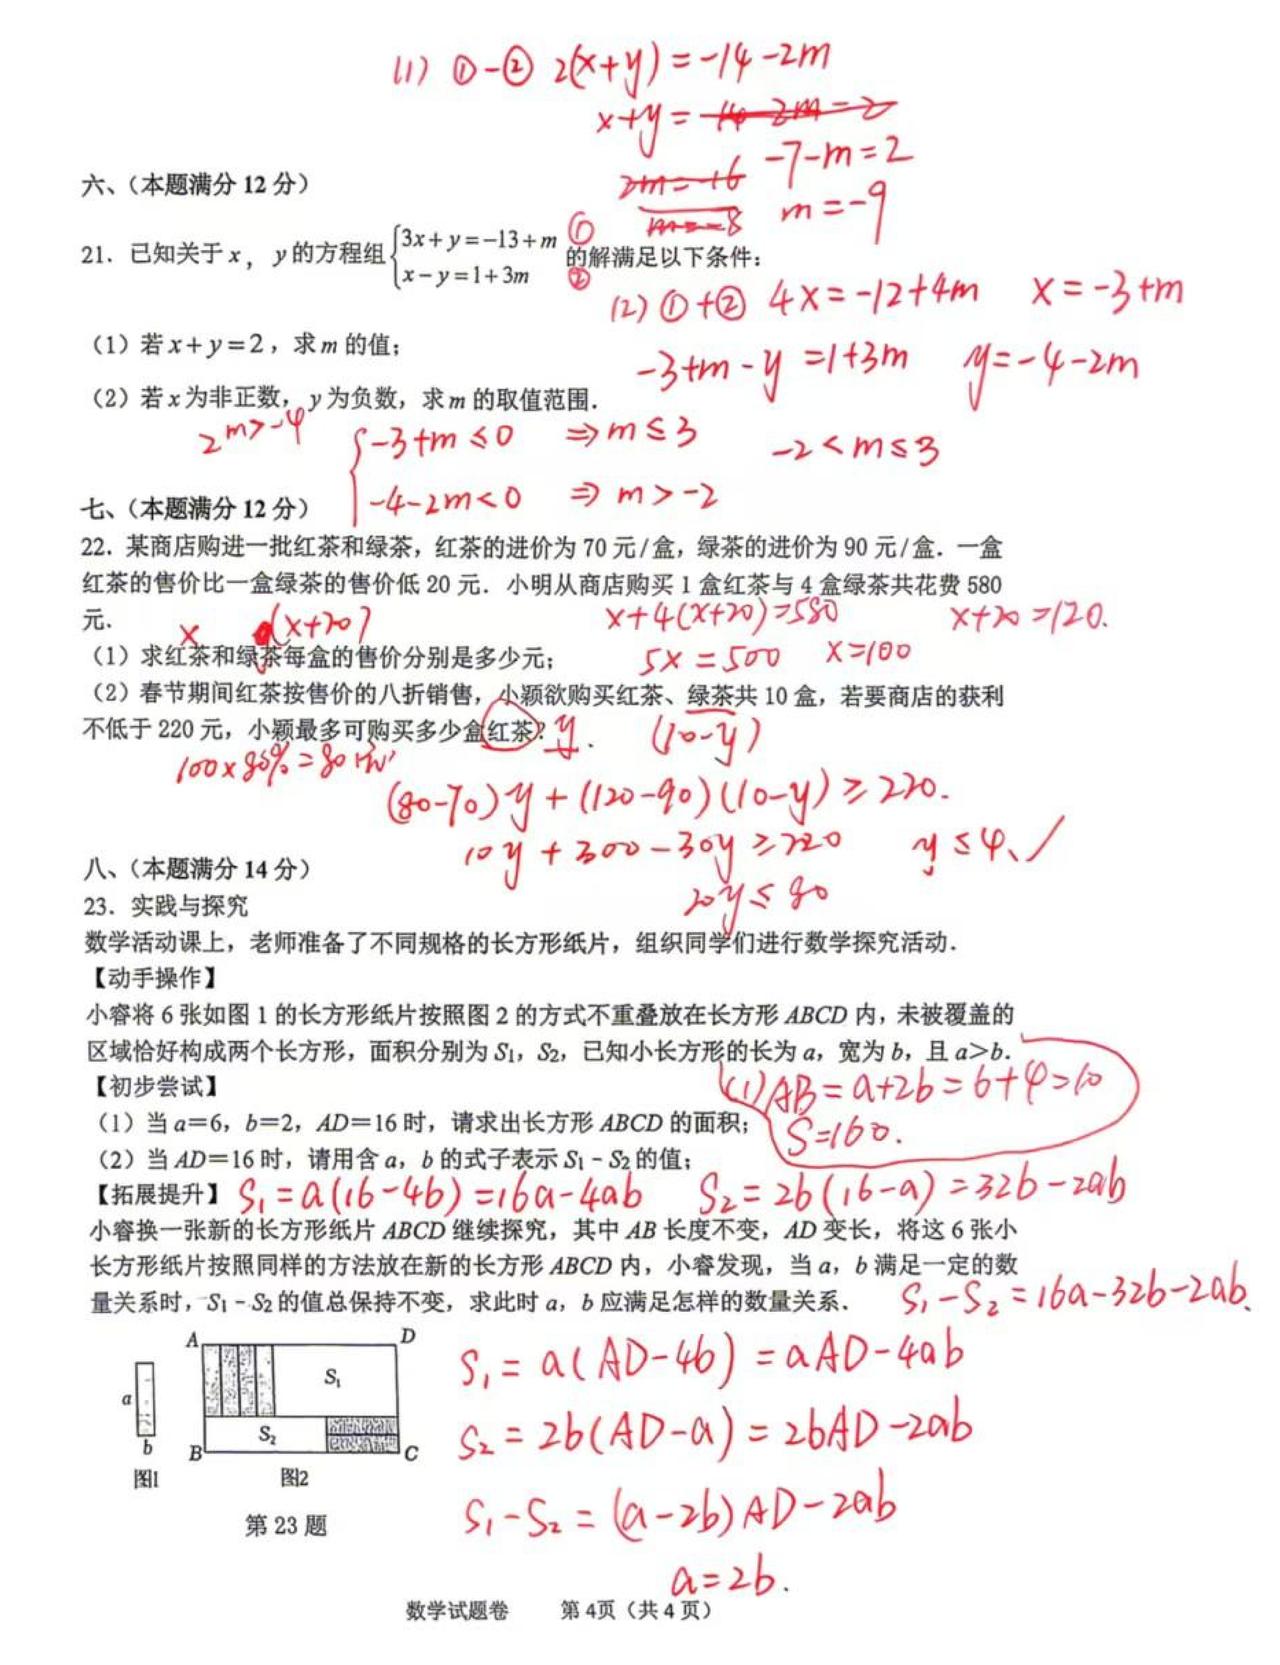 (1) ①-② 2(x+y)=-14-2m
x+y=
-7-m=2
2m=-16
m=-8 m=-9
六、（本题满分 12 分）
21．已知关于 x，y 的方程组 {3x+y=-13+m ① x-y=1+3m ② 的解满足以下条件：
(2) ①+② 4x=-12+4m x=-3+m
（1）若 x+y=2，求 m 的值；
-3+m-y=1+3m y=-4-2m
（2）若 x 为非正数，y 为负数，求 m 的取值范围．
2m>-4
{-3+m≤0 ⇒m≤3 -2<m≤3
-4-2m<0 ⇒ m>-2
七、（本题满分 12 分）
22．某商店购进一批红茶和绿茶，红茶的进价为 70 元/盒，绿茶的进价为 90 元/盒．一盒
红茶的售价比一盒绿茶的售价低 20 元．小明从商店购买 1 盒红茶与 4 盒绿茶共花费 580
元．
x (x+20) x+4(x+20)=580 x+20=120.
（1）求红茶和绿茶每盒的售价分别是多少元；
5x=500 x=100
（2）春节期间红茶按售价的八折销售，小颖欲购买红茶、绿茶共 10 盒，若要商店的获利
不低于 220 元，小颖最多可购买多少盒红茶？ y. (10-y)
100×80%=80
(80-70)y+(120-90)(10-y)≥220.
10y+300-30y≥220 y≤4、✓
八、（本题满分 14 分）
20y≤80
23．实践与探究
数学活动课上，老师准备了不同规格的长方形纸片，组织同学们进行数学探究活动．
【动手操作】
小睿将 6 张如图 1 的长方形纸片按照图 2 的方式不重叠放在长方形 ABCD 内，未被覆盖的
区域恰好构成两个长方形，面积分别为 S₁，S₂，已知小长方形的长为 a，宽为 b，且 a>b．
【初步尝试】
(1) AB=a+2b=6+4=10
（1）当 a=6，b=2，AD=16 时，请求出长方形 ABCD 的面积；
S=160.
（2）当 AD=16 时，请用含 a，b 的式子表示 S₁－S₂ 的值；
【拓展提升】 S₁=a(16-4b)=16a-4ab S₂=2b(16-a)=32b-2ab
小睿换一张新的长方形纸片 ABCD 继续探究，其中 AB 长度不变，AD 变长，将这 6 张小
长方形纸片按照同样的方法放在新的长方形 ABCD 内，小睿发现，当 a，b 满足一定的数
量关系时，S₁－S₂ 的值总保持不变，求此时 a，b 应满足怎样的数量关系．
S₁-S₂=16a-32b-2ab.
A D
S₁
a
S₂
b
B C
图1 图2
第 23 题
S₁=a(AD-4b)=aAD-4ab
S₂=2b(AD-a)=2bAD-2ab
S₁-S₂=(a-2b)AD-2ab
a=2b.
数学试题卷 第 4页（共 4 页）